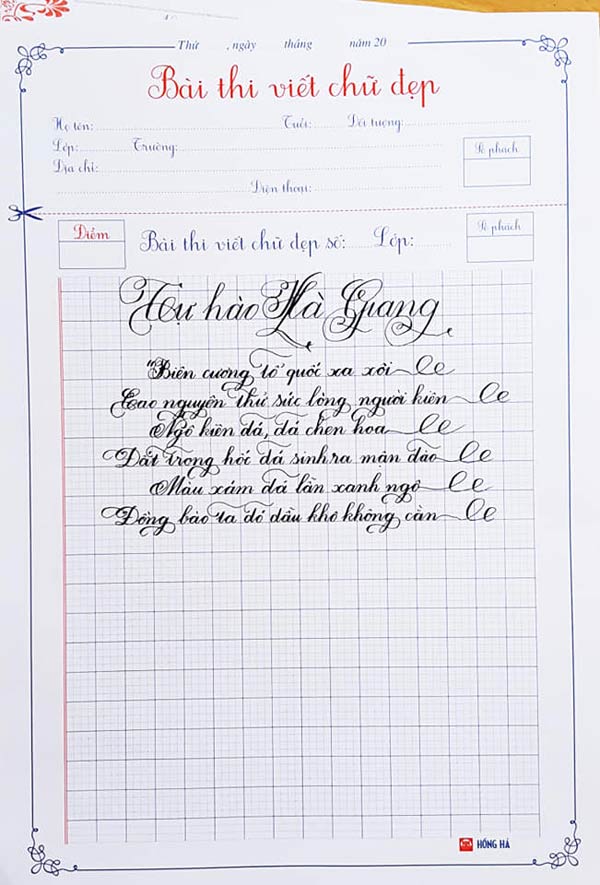 Thứ , ngày tháng năm 20
Bài thi viết chữ đẹp
Họ tên: Tuổi: Đối tượng:
Lớp: Trường:
Số phách
Địa chỉ:
Điện thoại:
Điểm
Bài thi viết chữ đẹp số: Lớp:
Số phách
Tự hào Hà Giang
"Biên cương tổ quốc xa xôi
Cao nguyên thử sức lòng người kiên
Ngô kiên đá, đá chen hoa
Đất trong hốc đá sinh ra màn dào
Màu xám đá lẫn xanh ngô
Đồng bào ta đó dầu khô không cằn
HỒNG HÀ